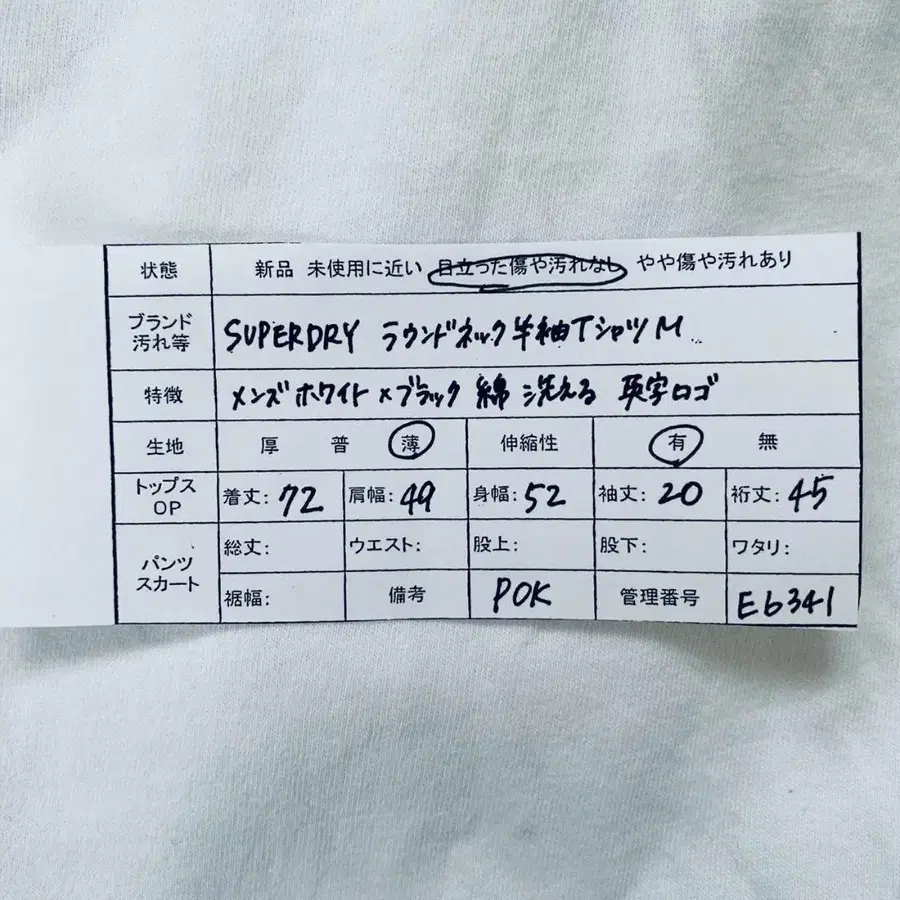 状態 新品 未使用に近い 目立った傷や汚れなし やや傷や汚れあり
ブランド 汚れ等 SUPERDRY ラウンドネック半袖TシャツM
特徴 メンズホワイト×ブラック 綿 洗える 英字ロゴ
生地 厚 普 薄 伸縮性 有 無
トップス OP 着丈:72 肩幅:49 身幅:52 袖丈:20 裄丈:45
パンツ スカート 総丈: ウエスト: 股上: 股下: ワタリ:
裾幅: 備考 POK 管理番号 E6341